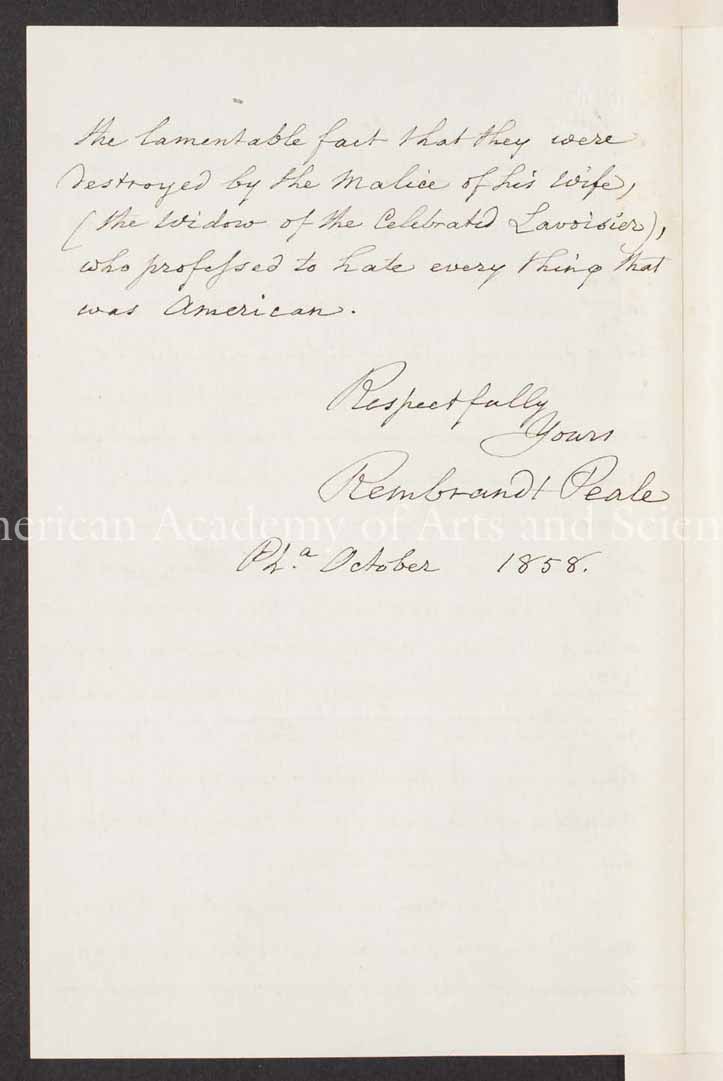 the lamentable fact that they were
destroyed by the Malice of his Wife,
(the Widow of the Celebrated Lavoisier),
who professed to hate every thing that
was American.
Respectfully
Yours
Rembrandt Peale
merican Academy of Arts and Scien
Pha. October 1858.